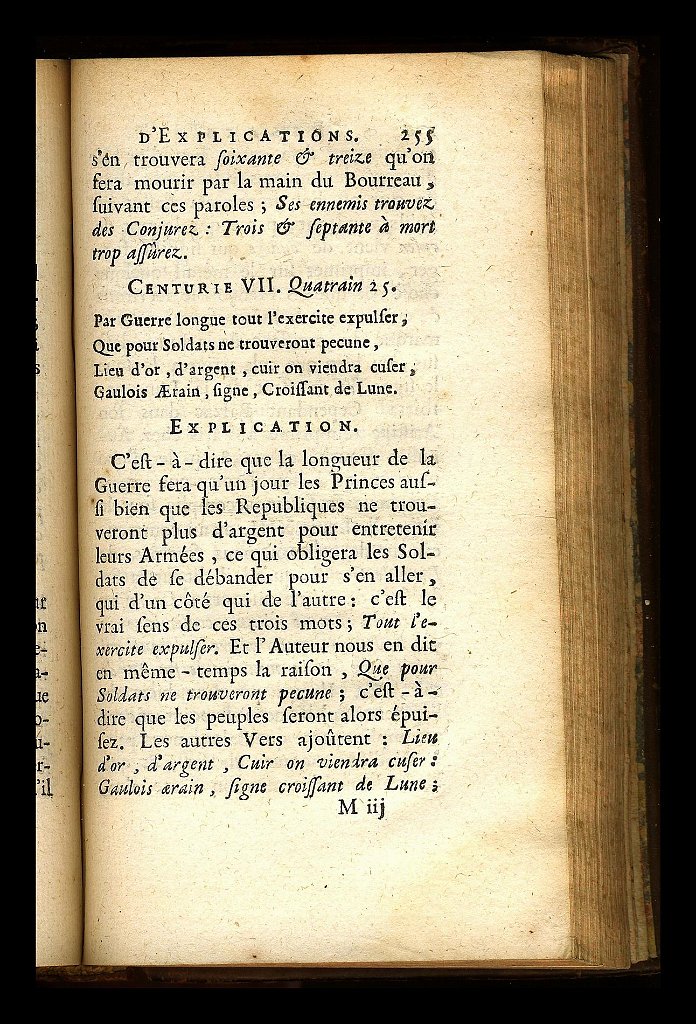 D'EXPLICATIONS. 255
s'en trouvera ſoixante & treize qu'on
fera mourir par la main du Bourreau,
ſuivant ces paroles ; Ses ennemis trouvez
des Conjurez : Trois & ſeptante à mort
trop aſſûrez.
CENTURIE VII. Quatrain 25.
Par Guerre longue tout l'exercite expulſer,
Que pour Soldats ne trouveront pecune,
Lieu d'or, d'argent, cuir on viendra cuſer;
Gaulois Ærain, ſigne, Croiſſant de Lune.
EXPLICATION.
C'eſt-à-dire que la longueur de la
Guerre fera qu'un jour les Princes auſ-
ſi bien que les Republiques ne trou-
veront plus d'argent pour entretenir
leurs Armées, ce qui obligera les Sol-
dats de ſe débander pour s'en aller,
qui d'un côté qui de l'autre: c'eſt le
vrai ſens de ces trois mots; Tout l'e-
xercite expulſer. Et l'Auteur nous en dit
en même-temps la raiſon, Que pour
Soldats ne trouveront pecune; c'eſt-à-
dire que les peuples ſeront alors épui-
ſez. Les autres Vers ajoûtent : Lieu
d'or, d'argent, Cuir on viendra cuſer:
Gaulois ærain, ſigne croiſſant de Lune;
M iij